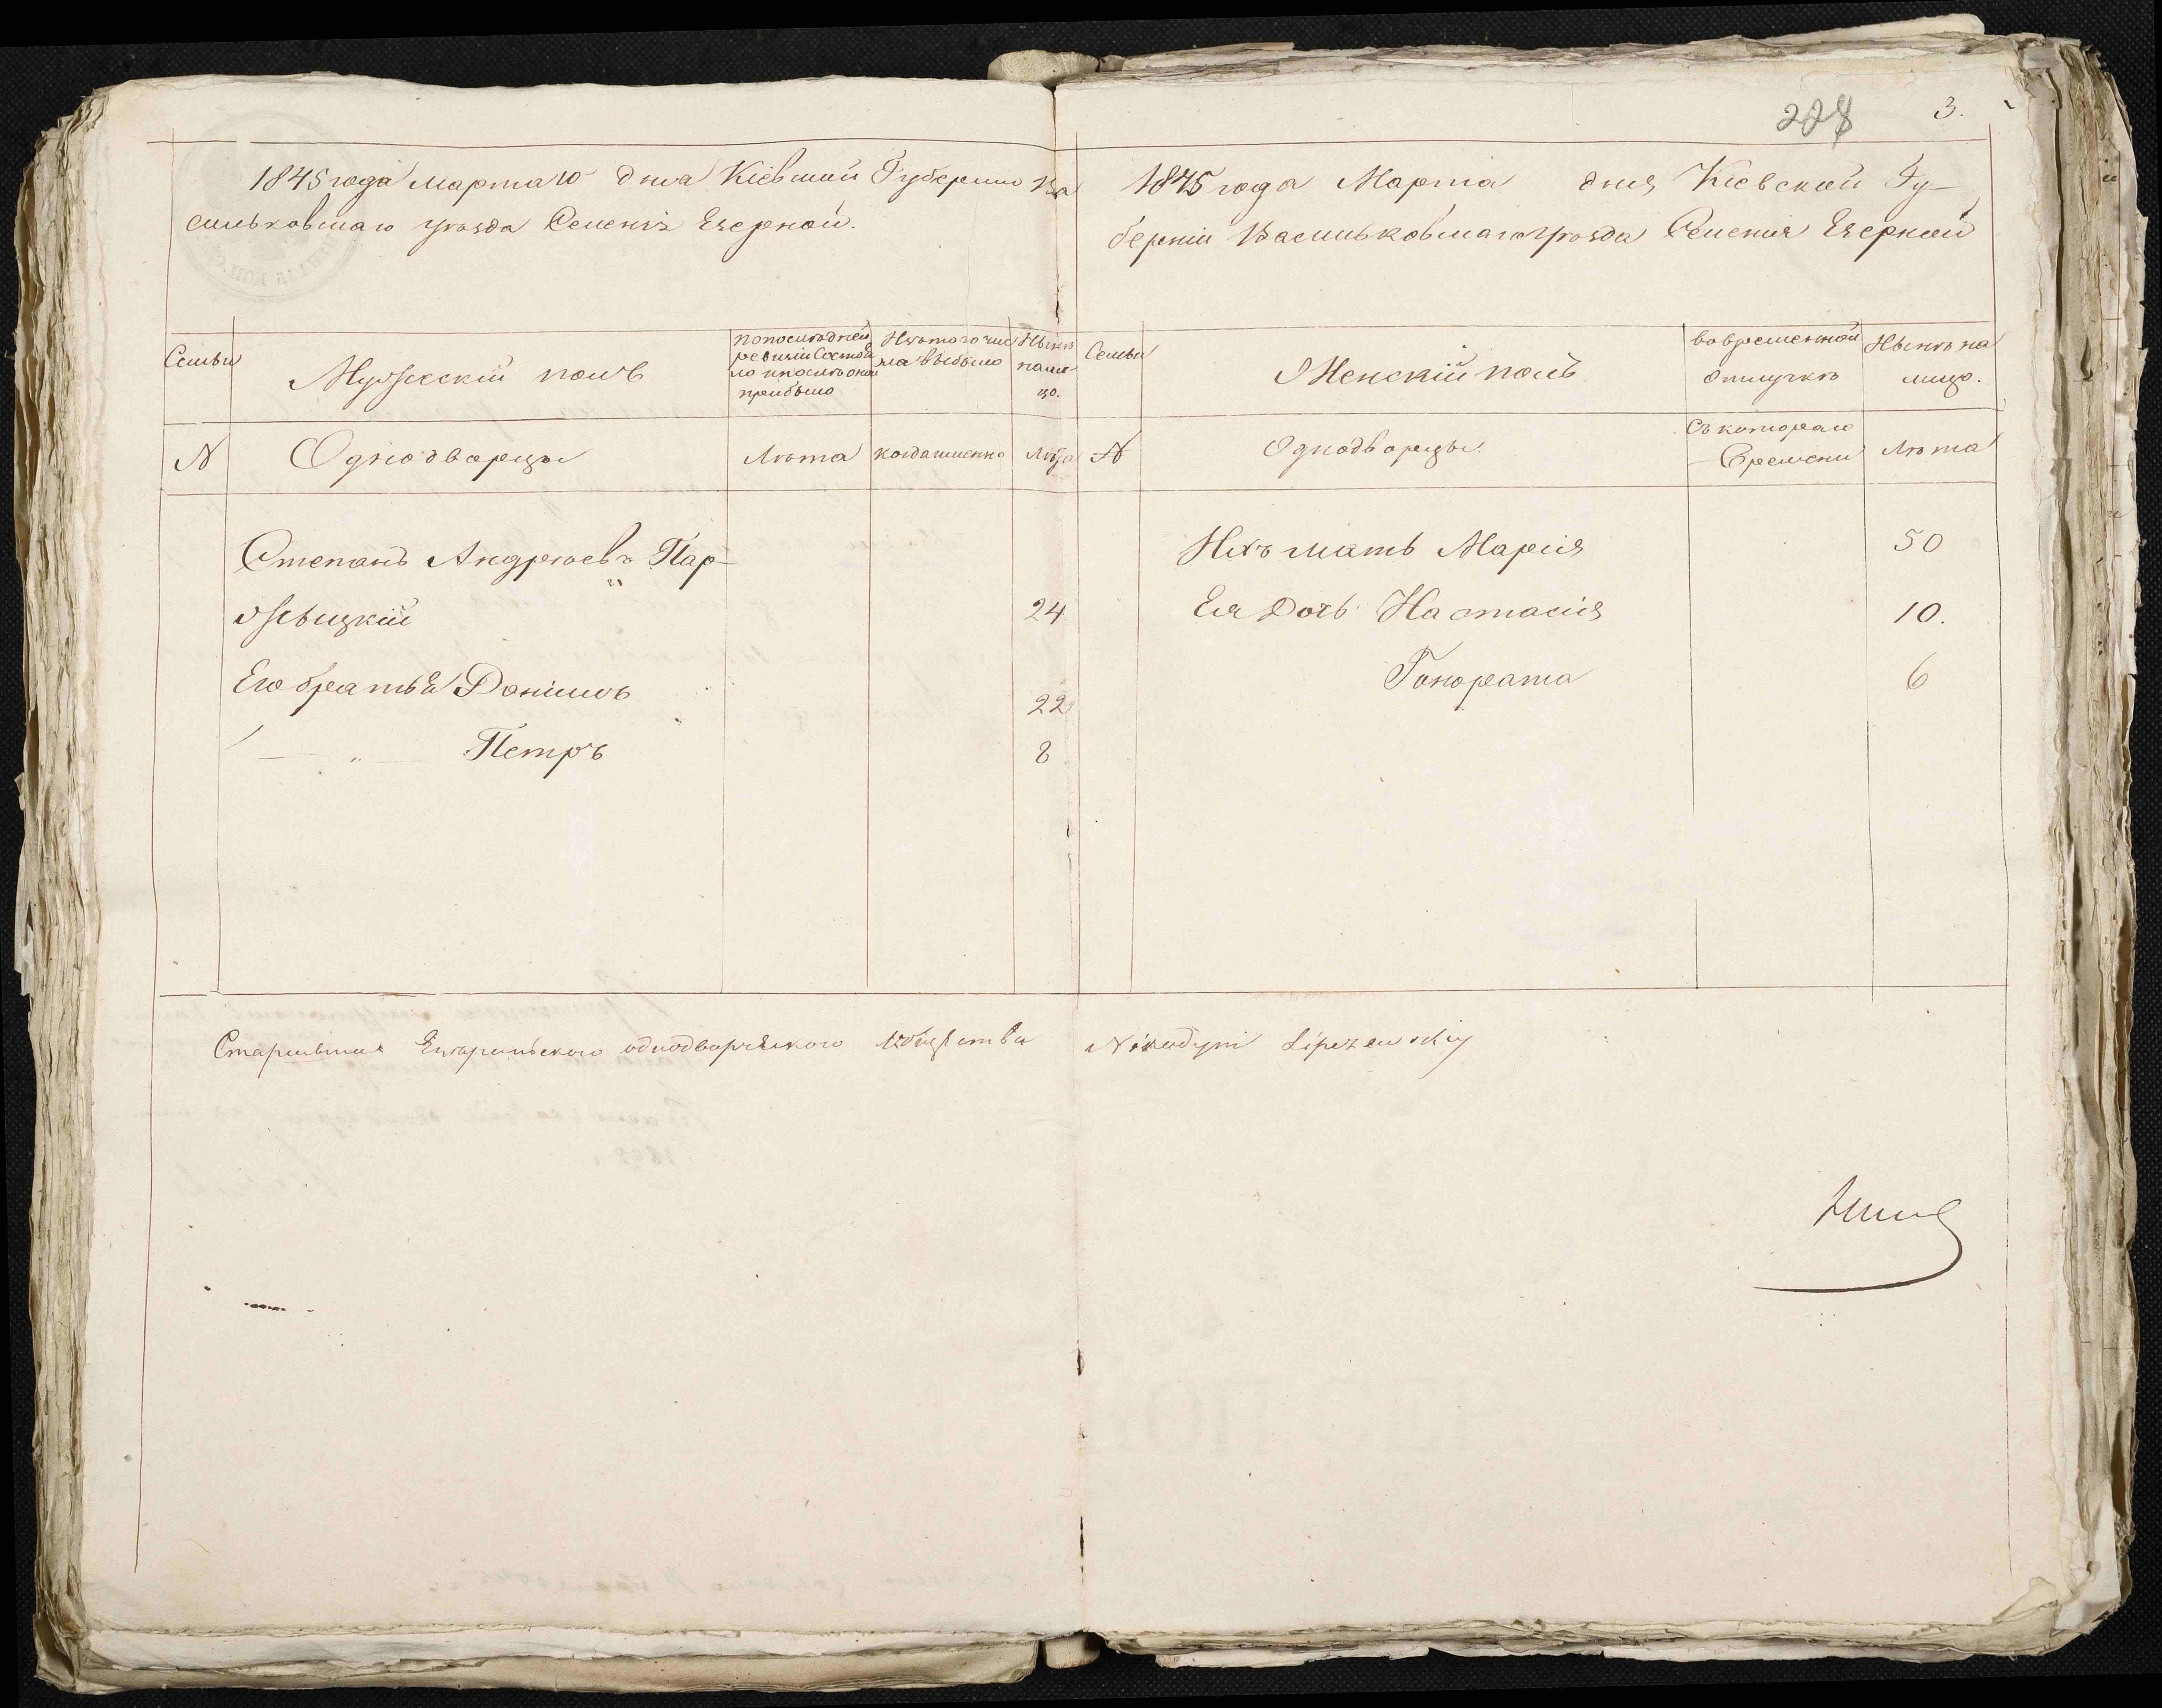 228 3.
1845 года марта 10 дня Кіевской Губерніи Ва
сильковскаго уѣзда Селенія Езерной.
1845 года Марта дня Кіевской Гу-
берніи Васильковскаго уѣзда Селенія Езерной
Семьи
Мужескій полъ
По последней
ревизіи Состоя
ло и после оной
прибыло
Изъ того чис
ла выбыло
Нынѣ
на ли-
цо.
Семьи
Женскій полъ
во временной
отлучкѣ
Нынѣ на
лицо.
N Однодворцы Лѣта когда именно Лѣта
N Однодворцы.
Съ котораго
Времени
Лѣта
Степанъ Андреевъ Пар-
жвицкій 24
Его братья Данилъ 22
— „ — Петръ 8
Ихъ мать Марія 50
Ея Дочь Настасія 10.
Гонората 6
Старшина однодворческаго общества Nikodym Lipczewskiy